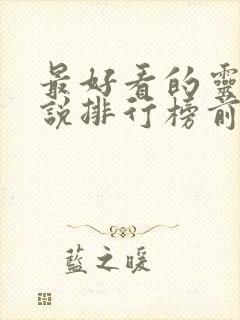 最好看的靈
說排行榜前
藍之暖